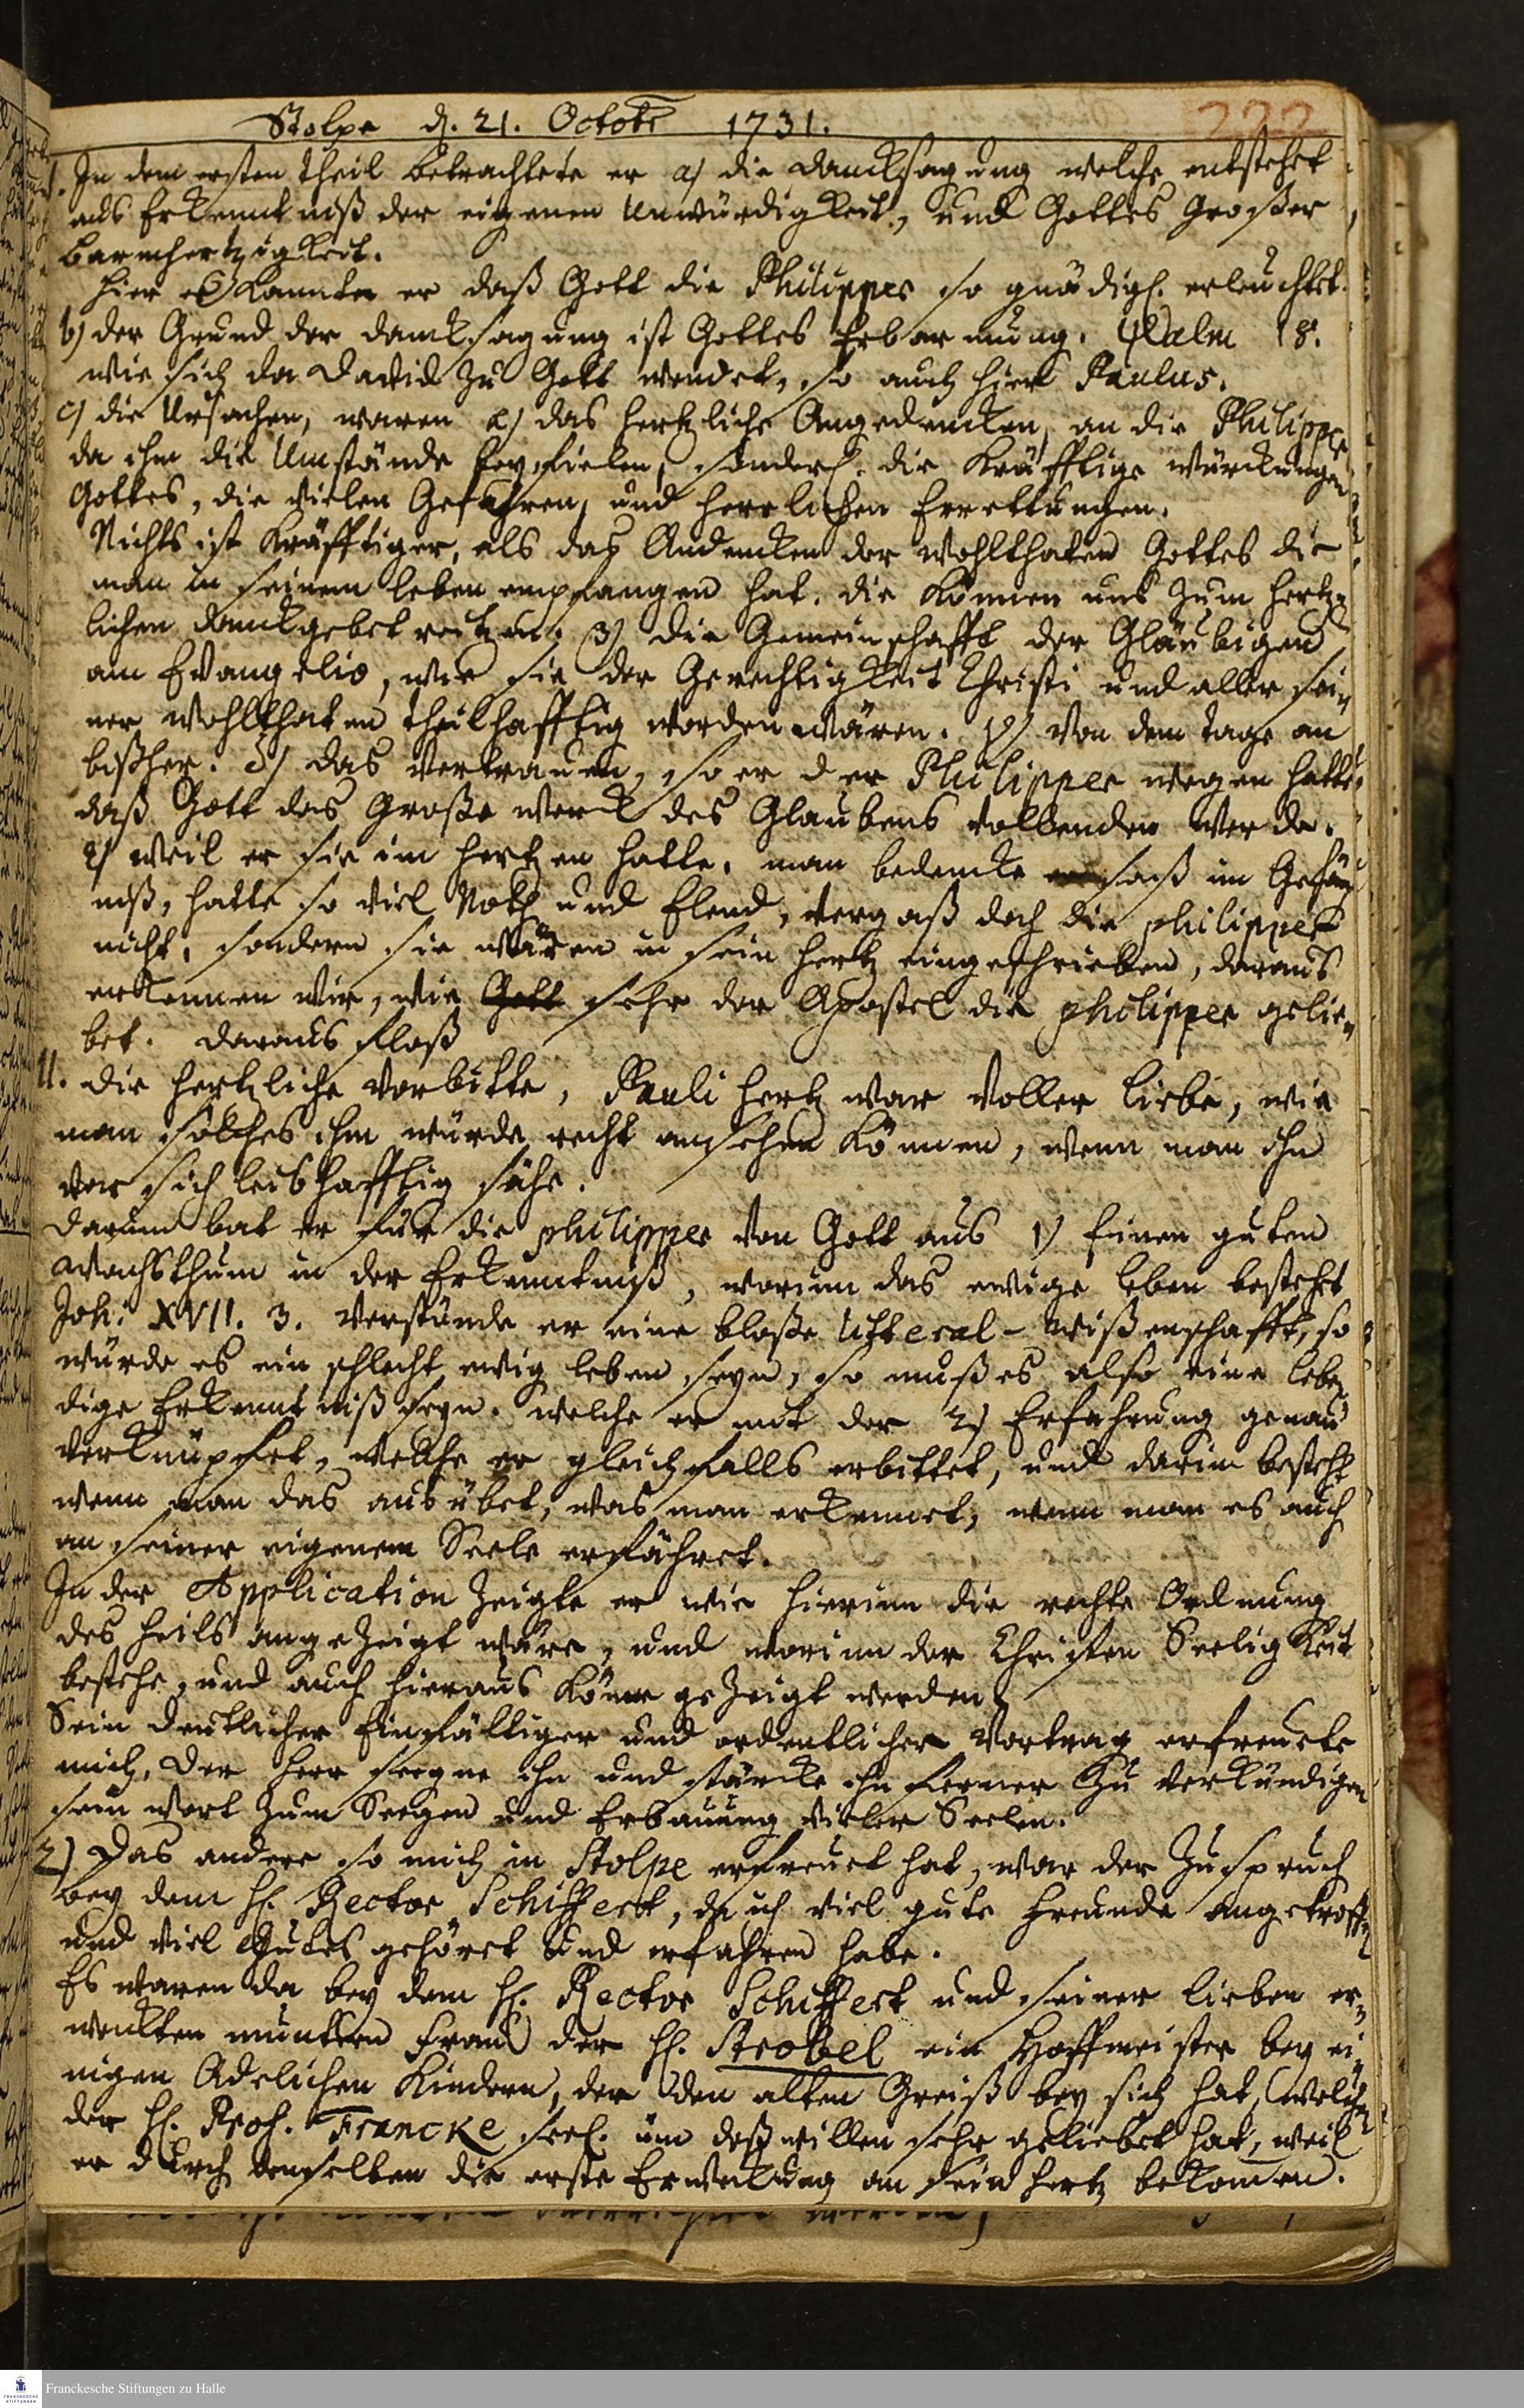 Stolpe d. 21. Octobr 1731.
222
I. In dem ersten Theil betrachtete er a) die Dancksagung welche entstehet
aus Erkenntniß der eigenen Unwürdigkeit, und Gottes Großer
Barmhertzigkeit.
Hier erkannte er daß Gott die Philipper so gnädigl. erleuchtet.
b) der Grund der Dancksagung ist Gottes Erbarmung. Psalm 18.
wie sich da David zu Gott wendet, so auch hier Paulus.
c) die Ursachen, waren α) das hertzliche Angedencken, an die Philipper
da ihm die Umstände beyfielen, sonderl. die Kräfftige würckungen
Gottes, die vielen Gefahren, und herrlichen Errettungen.
Nichts ist Kräfftiger, als das Andencken der Wohlthaten Gottes die
man in seinem Leben empfangen hat. die Können uns zum hertz-
lichen Danckgebet reitzen. β) die Gemeinschafft der Gläubigen
am Evangelio, wie sie der Gerechtigkeit Christi und aller sei-
ner Wohlthaten theilhafftig worden wären. γ) von dem tage an
bißher. δ) das Vertrauen, so er der Philipper wegen hatte,
daß Gott das Große Werck des Glaubens vollenden werde.
ε) weil er sie im Hertzen hatte. man bedencke er saß im Gefäng
niß, hatte so viel Noth und Elend, vergaß doch die philipper
nicht, sondern sie wären in sein Hertz eingeschrieben, daraus
erkennen wir, wie Gott sehr der Apostel die philipper gelie-
bet. Daraus floß
II. die hertzliche Vorbitte, Pauli Hertz war voller Liebe, wie
man solches ihm würde recht ansehen Können, wenn man ihn
vor sich leibhafftig sähe.
Darum bat er für die philipper von Gott aus 1) Einen guten
Wachsthum in der Erkenntniß, worinn das ewige Leben bestehet
Joh: XVII. 3. Verstünde er eine bloße Litteral-Wißenschafft, so
würde es ein schlecht ewig Leben seyn, so muß es also eine leben
dige Erkenntniß seyn. welche er mit der 2) Erfahrung genau
verknüpfet, welche er gleichfalls erbittet, und darin besteht
wenn man das ausübet, was man erkennet, wenn man es auch
an seiner eigenem Seele erfähret.
In der Application zeigte er wie hierinn die rechte Ordnung
des Heils angezeigt wäre, und worinn der Christen Seeligkeit
bestehe, und auch hieraus Könne gezeigt werden.
Sein deutlicher Einfältiger und ordentlicher Vortrag erfreuete
mich, Der Herr seegne ihn und stärcke ihn ferner zu verkündigen
sein Wort zum Seegen und Erbauung vieler Seelen.
2) Das andere so mich in Stolpe erfreuet hat, war der Zuspruch
bey dem H. Rector Schiffert, da ich viel gute Freunde angetroffen
und viel Gutes gehöret und erfahren habe.
Es waren da bey dem H. Rector Schiffert und seiner lieben er-
weckten muntern Frau der H. Strobel ein Hoffmeister bey ei-
nigen Adelichen Kindern, der den alten Greiß bey sich hat, welchen
der H. Prof. Francke seel. um deßwillen sehr geliebet hat, weil
er durch denselben die erste Erweckung an sein Hertz bekommen.
Franckesche Stiftungen zu Halle